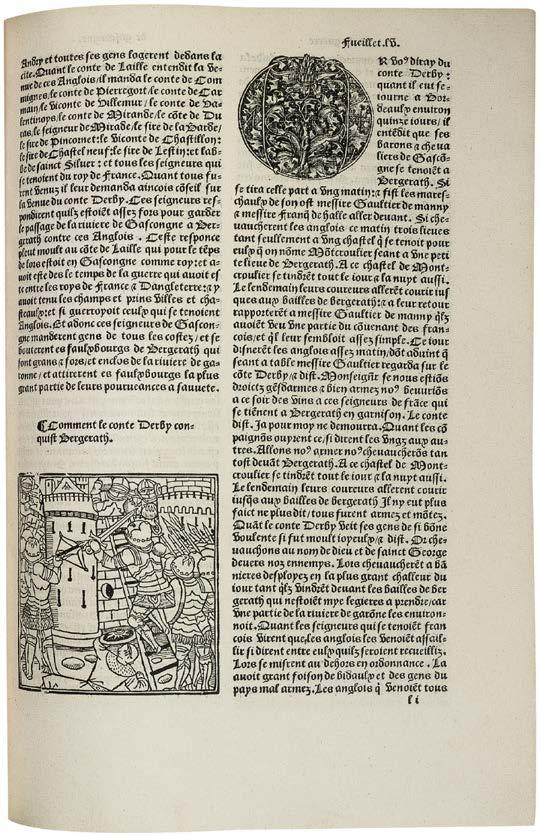 Fueillet.lv.
Andry et toutes ses gens logerent dedans la
cite. Quant le conte de Laille entendit la ve-
nue de ces Anglois/il manda le conte de Com
mignes/le conte de Pierregort/le conte de Car
maing/le viconte de Villemur/le conte de Va-
lentinoys/le conte de Mirande/le côte de Du
ras/le seigneur de Mirade/le sire de la Barde/
le sire de Pincornet:le viconte de Chastillon:
le sire de Chastel neuf:le sire de Lestinet labbe
de sainct Siluer: et tous les seigneurs qui
se tenoient du roy de France. Quant tous fu-
rent venuz il leur demanda aincois côseil sur
la venue du conte Derby. Ces seigneurs res-
pondirent quilz estoiêt assez fors pour garder
le passage de la riuiere de Gascongne a Ber-
gerath contre ces Anglois. Ceste responce
pleut moult au côte de Laille qui pour le têps
de lors estoit en Gascongne comme roy:et a-
uoit este des le temps de la guerre qui auoit es
te entre les roys de France & Dangleterre:& y
auoit tenu les champs et prins villes et cha-
steaulx:et si guerroyoit ceulx qui se tenoient
Anglois. Et adonc ces seigneurs de Gascon-
gne manderent gens de tous les costez/et se
bouterent es faulxbourgs de Bergerath qui
sont grans & fors/et enclos de la riuiere de ga-
ronne/et attirerent es faulxbourgs la plus
grant partie de leurs pourueances a sauuete.
¶Comment le conte Derby con-
quist Bergerath.
R voꝰ diray du
conte Derby:
quant il eut se-
iourne a Bor-
deaulx enuiron
quinze iours/il
entêdit que ses
barons & cheua
liers de Gascô-
gne se tenoiêt a
Bergerath. Si
se tira celle part a vng matin:& fist les mares-
chaulx de son ost messire Gaultier de manny
& messire Franq de halle aller deuant. Si che-
uaucherent les anglois ce matin trois lieues
tant seullement a vng chastel q̃ se tenoit pour
eulx q̃ on nôme Môtcroulier seant a vne peti
te lieue de Bergerath. A ce chastel de Mont-
croulier se tindrêt tout le iour & la nuyt aussi.
Le lendemain leurs coureurs allerêt courir ius
ques aux bailles de bergerath:& a leur retour
rapporterêt a messire Gaultier de manny q̃lz
auoiêt veu vne partie du côuenant des fran-
cois/et q̃l leur sembloit assez simple. Ce iour
disnerêt les anglois assez matin/dôt aduint q̃
seant a table messire Gaultier regarda sur le
côte Derby & dist. Monseignr̃ se nous estiôs
droictz gêsdarmes & bien armez noꝰ beuuriôs
a ce soir des vins a ces seigneurs de frãce qui
se tiênent a Bergerath en garnison. Le conte
dist. Ja pour moy ne demourra. Quant les cô
paignôs ouyrent ce/si dirent les vngz aux au-
tres. Allons noꝰ armer noꝰ cheuaucherôs tan
tost deuãt Bergerath. A ce chastel de Mont-
croulier se tindrêt tout le iour & la nuyt aussi.
Le lendemain leurs coureurs allerent courir
iusq̃s aux bailles de bergerath Il ny eut plus
faict ne plus dit/tous furent armez et môtez.
Quãt le conte Derby veit ses gens de si bône
voulente si fut moult ioyeulx/& dist. Or che-
uauchons au nom de dieu et de sainct George
deuers noz ennemys. Lors cheuaucherêt a bã
nieres desployez en la plus grant challeur du
iour tant q̃lz vindrêt deuant les bailles de ber
gerath qui nestoiêt mye legieres a prendre/car
vne partie de la riuiere de garône les enuiron-
noit. Quant les seigneurs qui se tenoiêt fran
cois virent que les anglois les venoiêt assail-
lir si dirent entre eulx quilz seroient recueilliz.
Lors se misrent au dehors en ordonnance. La
auoit grant foison de bidaulx et des gens du
pays mal armez. Les anglois q̃ venoiêt tous
l i